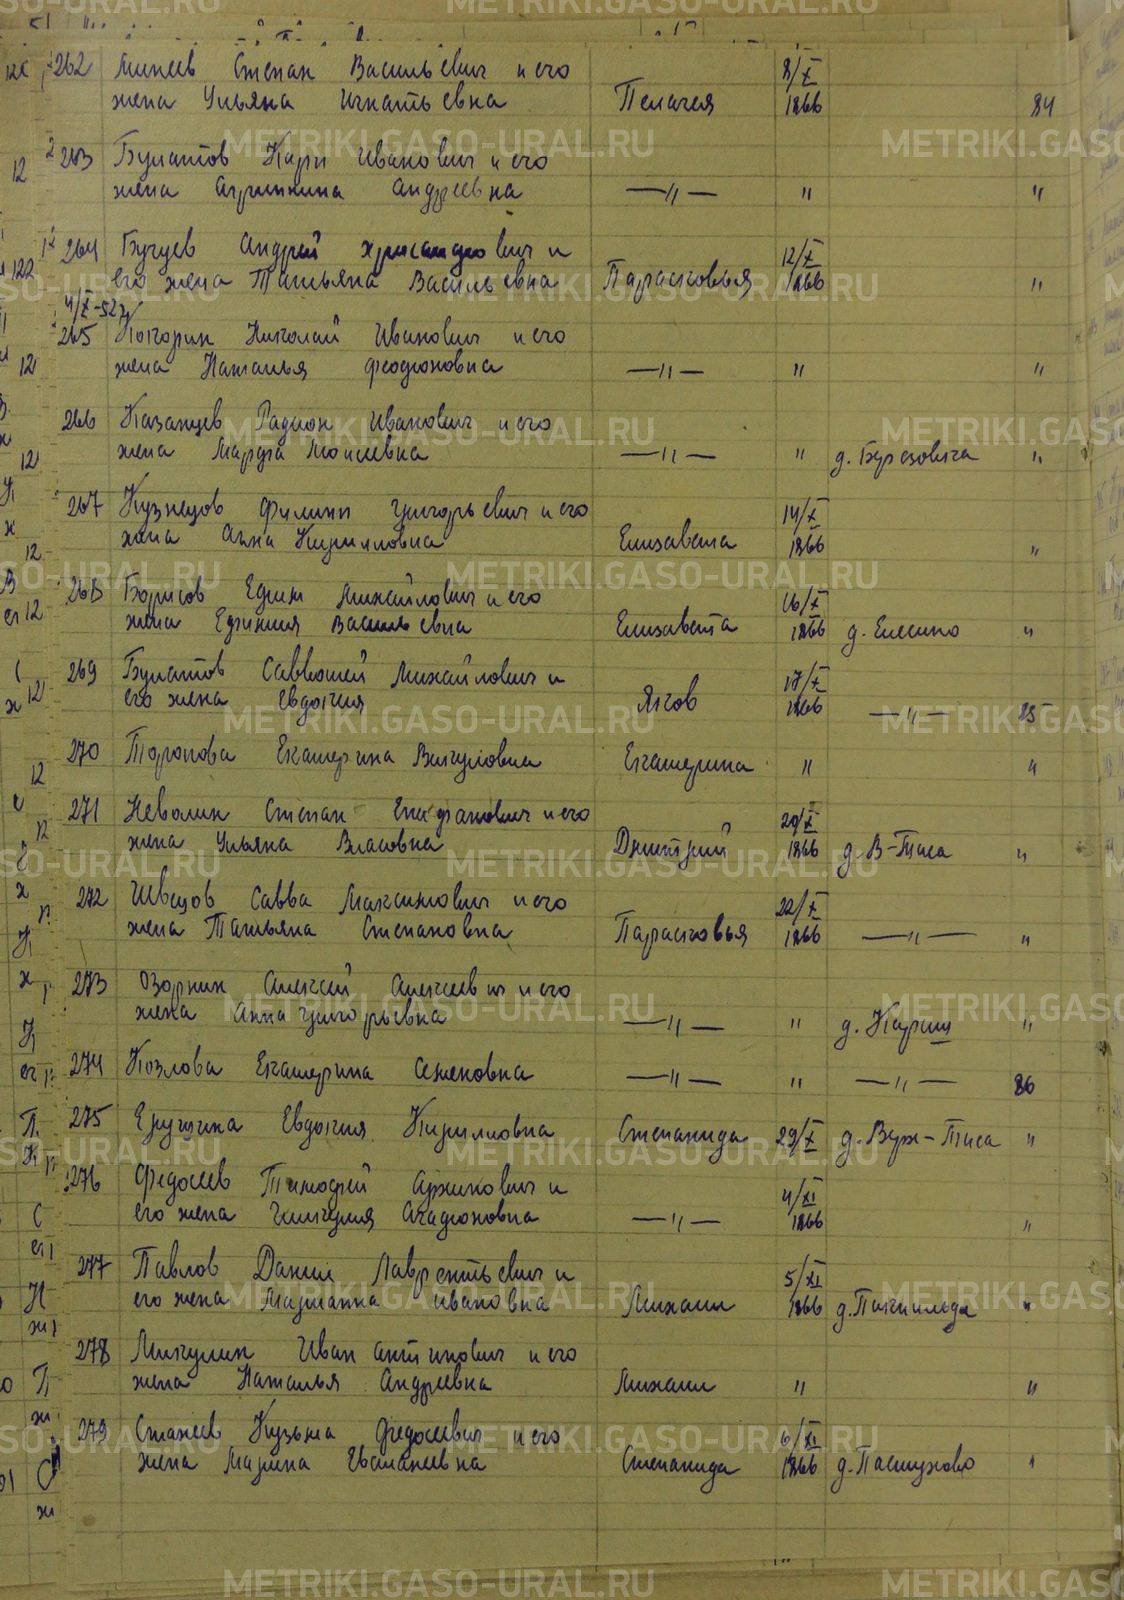 262 Минеев Степан Васильевич и его 8/X
жена Ульяна Игнатьевна Пелагея 1866 84
263 Булатов Карп Иванович и его
жена Агрипина Андреевна —"— " "
264 Бугуев Андрей Хрисанфович и 12/X
его жена Татьяна Васильевна Парасковья 1866 "
4/X-52г
265 Кокорин Николай Иванович и его
жена Наталья Феодоновна —"— " "
266 Казанцев Радион Иванович и его
жена Марфа Моисеевна —"— " д. Березовича "
267 Кузнецов Филипп Григорьевич и его 14/X
жена Анна Кирилловна Елизавета 1866 "
268 Борисов Ефим Михайлович и его 16/X
жена Ефимия Васильевна Елизавета 1866 д. Елесино "
269 Булатов Савватей Михайлович и 17/X
его жена Евдокия Яков 1866 —"— 85
270 Торопова Екатерина Викуловна Екатерина " "
271 Неволин Степан Епифанович и его 20/X
жена Ульяна Власовна Дмитрий 1866 д. В-Тиса "
272 Швецов Савва Максимович и его 22/X
жена Татьяна Степановна Парасковья 1866 —"— "
273 Озорнин Алексей Алексеевич и его
жена Анна Григорьевна —"— " д. Карши "
274 Козлова Екатерина Семеновна —"— " —"— 86
275 Евдокия Кирилловна Степанида 29/X д. Верх-Тиса "
276 Федосеев Тимофей Архипович и 4/XI
его жена Гликерия —"— 1866 "
277 Павлов Данил Лаврентьевич и 5/XI
его жена Марианна Ивановна Михаил 1866 "
278 Микулин Иван Антипович и его
жена Наталья Андреевна Михаил " "
279 Стахеев Кузьма Федосеевич и его 6/XI
жена Марина Степанида 1866 д. Пастухово "
METRIKI.GASO-URAL.RU